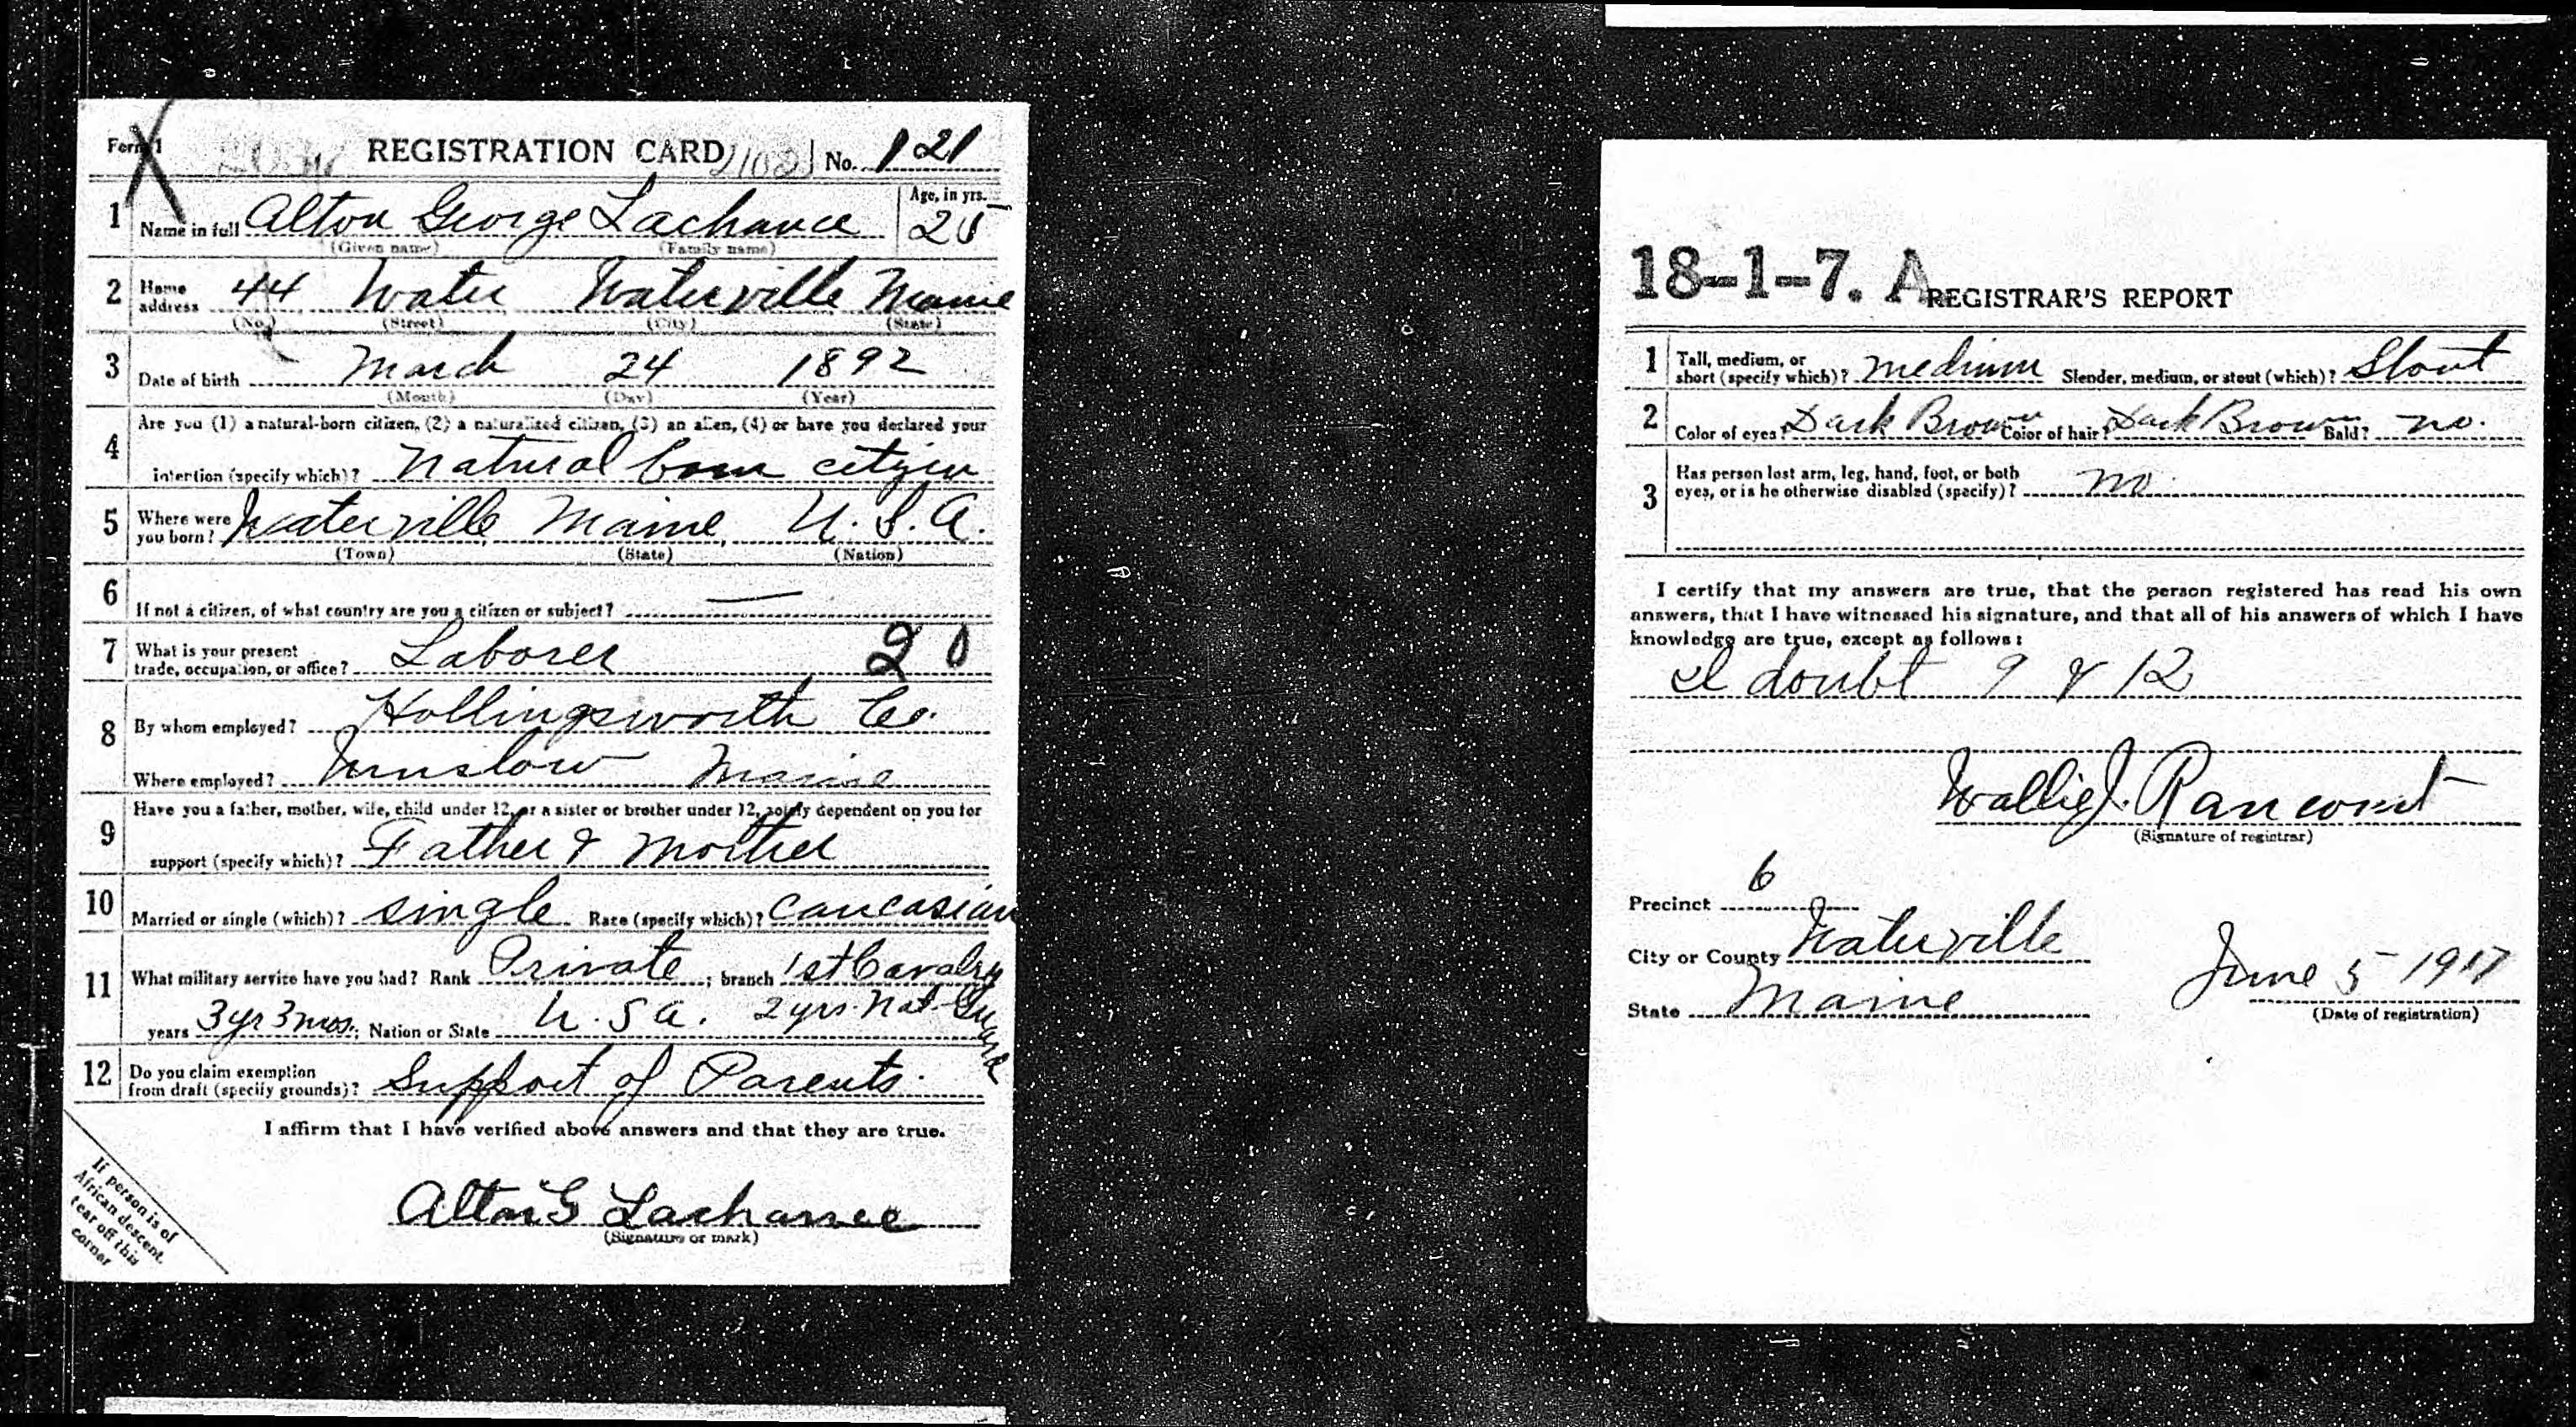 Form 1 REGISTRATION CARD No. 121
1 Name in full Alton George Lachance Age, in yrs. 25
(Given name) (Family name)
2 Home address 44 Water Waterville Maine
(No.) (Street) (City) (State)
3 Date of birth March 24 1892
(Month) (Day) (Year)
4 Are you (1) a natural-born citizen, (2) a naturalized citizen, (3) an alien, (4) or have you declared your
intention (specify which)? Natural born citizen
5 Where were you born? Waterville, Maine, U.S.A.
(Town) (State) (Nation)
6 If not a citizen, of what country are you a citizen or subject? —
7 What is your present trade, occupation, or office? Laborer 20
8 By whom employed? Hollingsworth Co.
Where employed? Winslow Maine
9 Have you a father, mother, wife, child under 12, or a sister or brother under 12, solely dependent on you for
support (specify which)? Father & Mother
10 Married or single (which)? single Race (specify which)? Caucasian
11 What military service have you had? Rank Private ; branch 1st Cavalry
years 3 yr 3 mos. ; Nation or State U.S.A. 2 yrs. Nat. Guard
12 Do you claim exemption from draft (specify grounds)? Support of Parents.
I affirm that I have verified above answers and that they are true.
Alton G Lachance
(Signature or mark)
If person is of
African descent,
tear off this
corner
18-1-7. A REGISTRAR'S REPORT
1 Tall, medium, or short (specify which)? medium Slender, medium, or stout (which)? Stout
2 Color of eyes? Dark Brown Color of hair? Dark Brown Bald? no.
3 Has person lost arm, leg, hand, foot, or both
eyes, or is he otherwise disabled (specify)? no
I certify that my answers are true, that the person registered has read his own
answers, that I have witnessed his signature, and that all of his answers of which I have
knowledge are true, except as follows:
I doubt 9 & 12
Wallie J. Rancourt
(Signature of registrar)
Precinct 6
City or County Waterville
State Maine June 5 1917
(Date of registration)